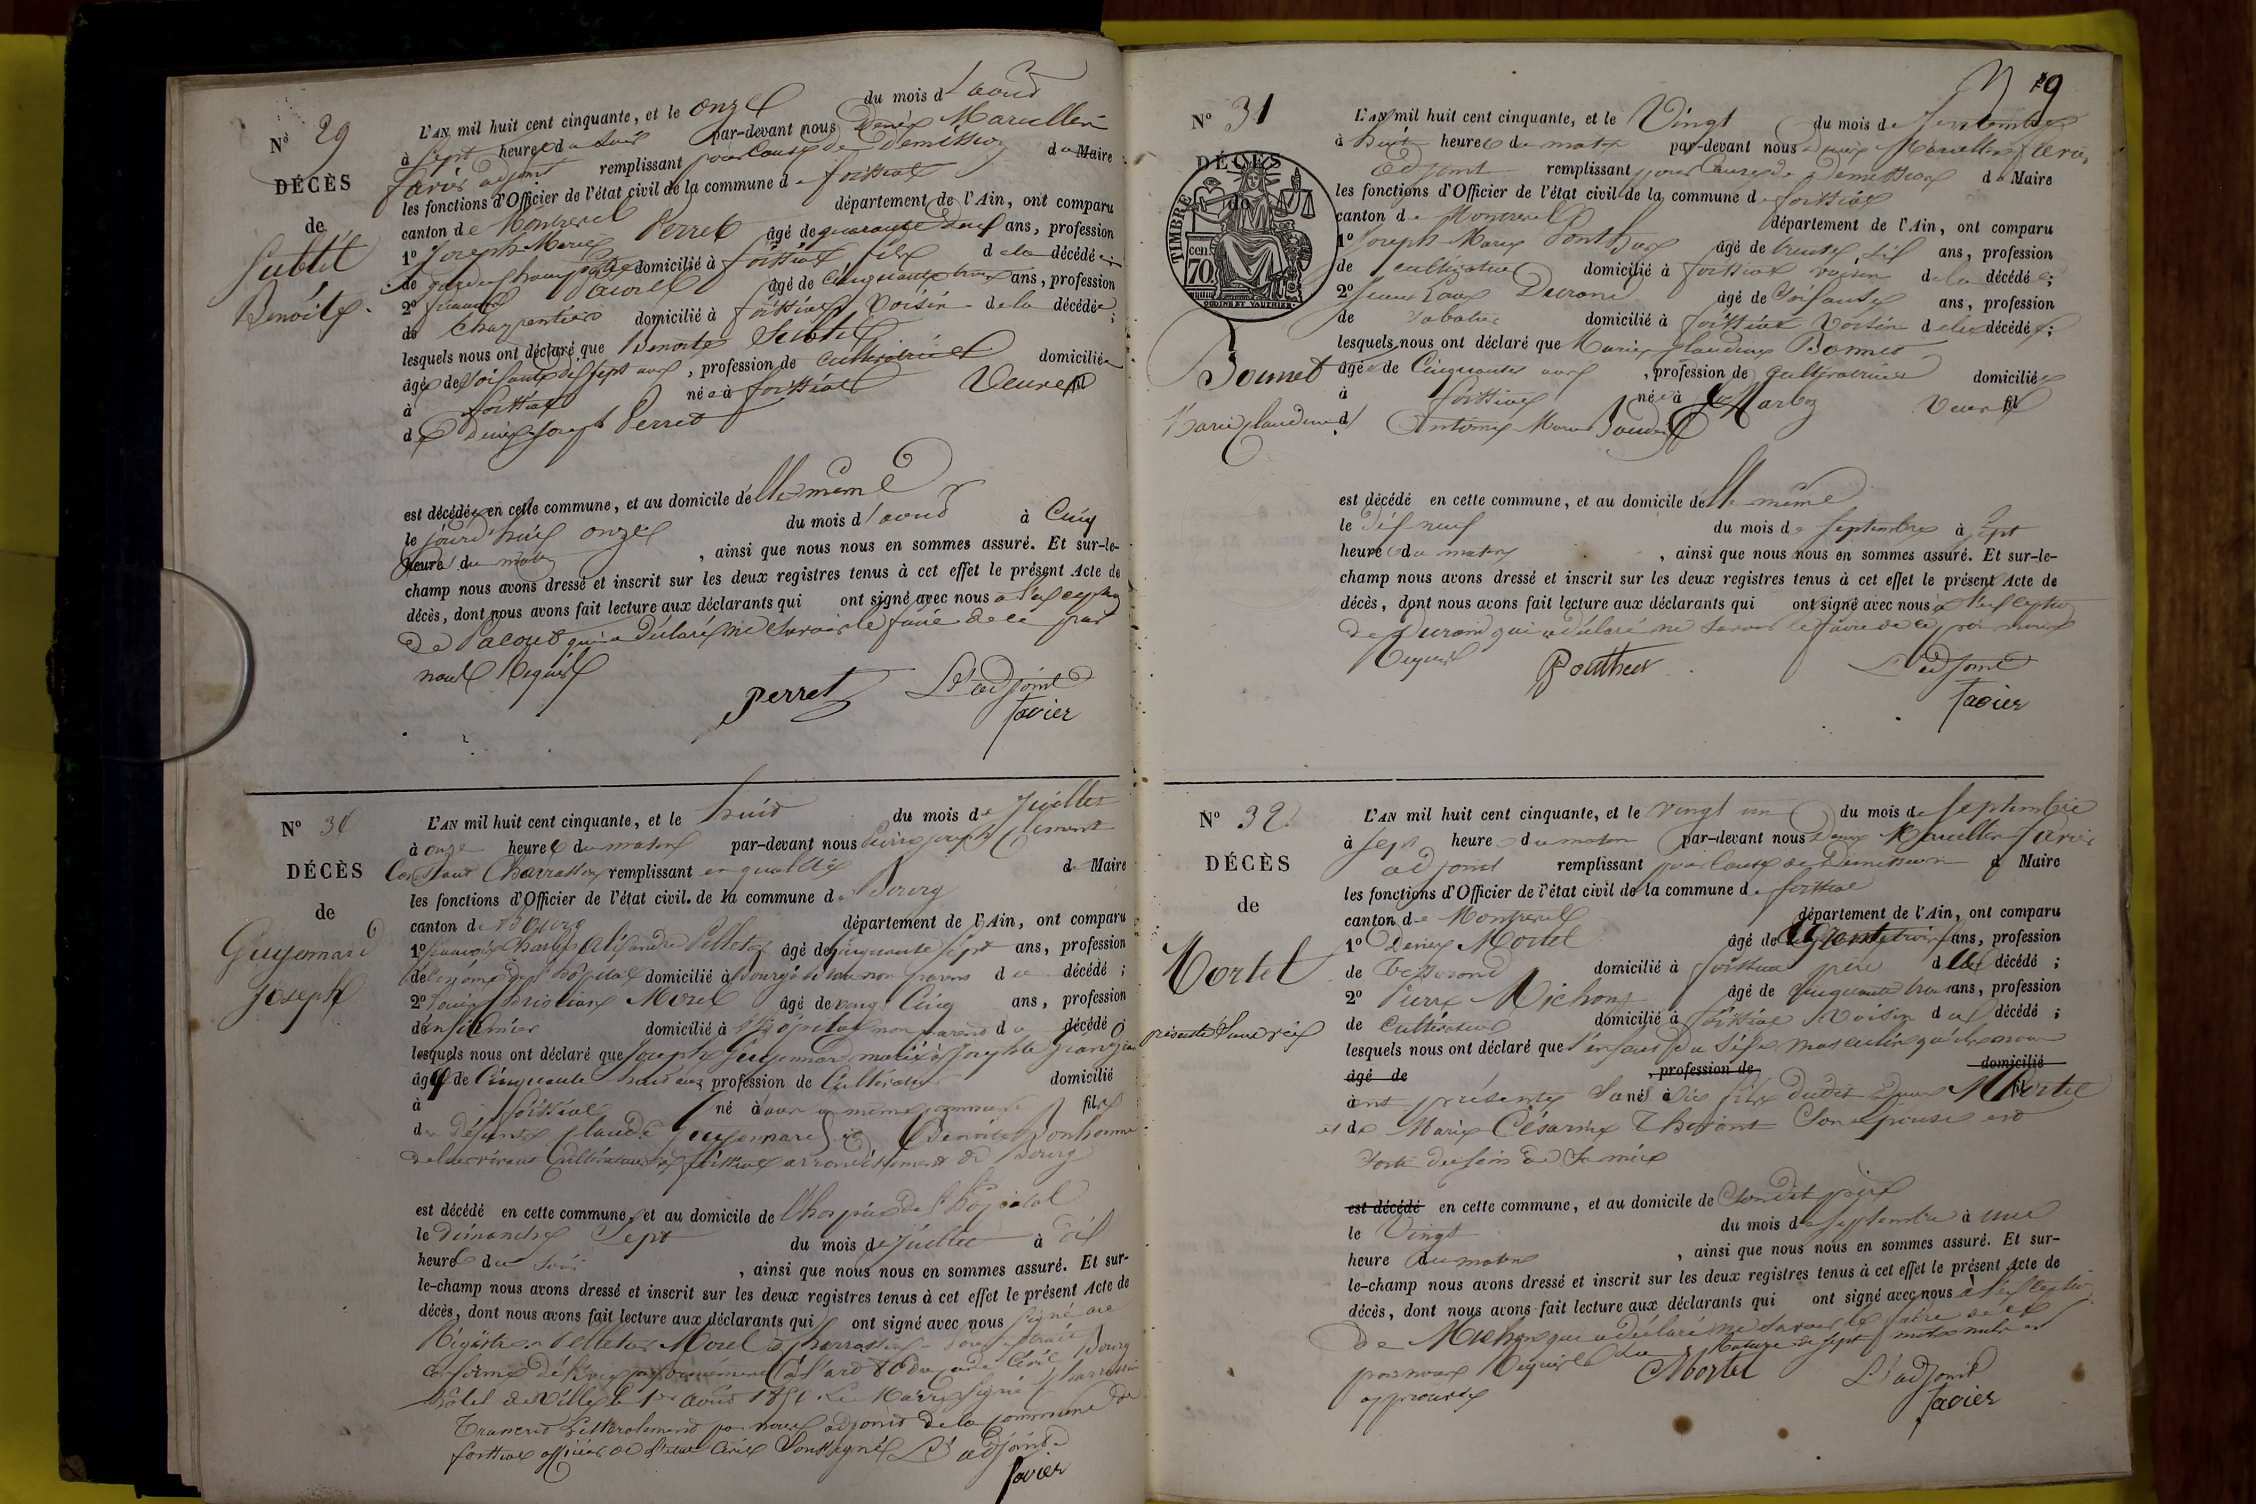 N° 29
DÉCÈS
de
Subtil
Benoîte.
L'AN mil huit cent cinquante, et le onze du mois d'aoud
à sept heures du soir par-devant nous Denix Marcellin
favier adjoint remplissant pour cause de demission de Maire
les fonctions d'Officier de l'état civil de la commune de foissiat
canton de Montrevel département de l'Ain, ont comparu
1° Joseph Marie Perret âgé de quarante deux ans, profession
de garde champetre domicilié à foissiat fils de la décédée
2° francois Pacoud âgé de cinquante trois ans, profession
de Charpentier domicilié à foissiat Voisin de la décédée;
lesquels nous ont déclaré que Benoite Subtil
âgée de soissante dix sept ans, profession de cultivatrice domiciliée
à foissiat née à foissiat Veuve
de Denix Joseph Perret
est décédée en cette commune, et au domicile d'elle même
le jourd'huis onze du mois d'aoud à Cinq
heure du matin, ainsi que nous nous en sommes assuré. Et sur-le-
champ nous avons dressé et inscrit sur les deux registres tenus à cet effet le présent Acte de
décès, dont nous avons fait lecture aux déclarants qui ont signé avec nous a l'exception
de Pacoud qui a déclaré ne savoir le faire de ce par
nous Requis
Perret L'adjoint
favier
N° 30
DÉCÈS
de
Guyennard
Joseph
L'AN mil huit cent cinquante, et le huid du mois de Juillet
à onze heures du matin par-devant nous Pierre joseph Clément
Constant Charrassin remplissant en qualité de Maire
les fonctions d'Officier de l'état civil de la commune de Bourg
canton de Bourg département de l'Ain, ont comparu
1° francois Charles Alisandre Pelletier âgé de cinquante sept ans, profession
de économe des hôpitaux domicilié à Bourg non parens du décédé;
2° Morel âgé de vingt Cinq ans, profession
d'infirmier domicilié à l'hôpital non parens du décédé;
lesquels nous ont déclaré que Joseph Guyennard, marié à
âgé de Cinquante huit ans profession de Cultivateur domicilié
à foissiat né à même commune fils
de défunts Claude Guyennard et Benoîte Bonhomme
de leur vivant Cultivateurs à foissiat arrondissement de Bourg
est décédé en cette commune, et au domicile de l'hospice de l'hôpital
le dimanche sept du mois de juillet à dix
heures du soir, ainsi que nous nous en sommes assuré. Et sur-
le-champ nous avons dressé et inscrit sur les deux registres tenus à cet effet le présent Acte de
décès, dont nous avons fait lecture aux déclarants qui ont signé avec nous signé au
Régistre Pelletier Morel Charrassin
conforme délivré conformément à l'ard 80 du code Civil Bourg
hôtel de Ville le 1er aoud 1850 Le Maire Signé Charrassin
Transcrit littéralement par nous adjoint de la commune de
foissiat officier de l'état Civil Soussigné L'adjoint
favier
19
N° 31
DÉCÈS
de
TIMBRE
70 cen.
OUDINÉ ET VAUTHIER
Bonnet
Marie Claudine
L'AN mil huit cent cinquante, et le Vingt du mois de septembre
à huit heures du matin par-devant nous Denix Marcellin favier
adjoint remplissant pour cause de demission de Maire
les fonctions d'Officier de l'état civil de la commune de foissiat
canton de Montrevel département de l'Ain, ont comparu
1° Joseph Marie Ponthus âgé de trente six ans, profession
de cultivateur domicilié à foissiat voisin de la décédée;
2° Durand âgé de soissante ans, profession
de sabotier domicilié à foissiat Voisin de la décédée;
lesquels nous ont déclaré que Marie Claudine Bonnet
âgée de Cinquante ans, profession de Cultivatrice domiciliée
à foissiat née à Marboz Veuve
d'Antoine Marie
est décédé en cette commune, et au domicile d'elle même
le dix neuf du mois de septembre à sept
heure du matin, ainsi que nous nous en sommes assuré. Et sur-le-
champ nous avons dressé et inscrit sur les deux registres tenus à cet effet le présent Acte de
décès, dont nous avons fait lecture aux déclarants qui ont signé avec nous a l'exception
de Durand qui a déclaré ne savoir le faire de ce par nous
Requis Ponthus L'adjoint
favier
N° 32
DÉCÈS
de
Mortel
présenté sans vie
L'AN mil huit cent cinquante, et le vingt un du mois de septembre
à sept heures du matin par-devant nous Denix Marcellin favier
adjoint remplissant pour cause de demission de Maire
les fonctions d'Officier de l'état civil de la commune de foissiat
canton de Montrevel département de l'Ain, ont comparu
1° Denix Mortel âgé de trente trois ans, profession
de Tisserand domicilié à foissiat père du décédé;
2° Pierre Michon âgé de cinquante trois ans, profession
de Cultivateur domicilié à foissiat Voisin du décédé;
lesquels nous ont déclaré que l'enfant du sexe masculin qu'ils nous
âgé de, profession de domicilié
ont présenté sans vie fils dudit Denix Mortel
et de Marie Césarine Thevont son epouse est
sorti du sein de sa mère
est décédé en cette commune, et au domicile de son dit père
le Vingt du mois de septembre à une
heure du matin, ainsi que nous nous en sommes assuré. Et sur-
le-champ nous avons dressé et inscrit sur les deux registres tenus à cet effet le présent Acte de
décès, dont nous avons fait lecture aux déclarants qui ont signé avec nous à l'exception
de Michon qui a déclaré ne savoir le faire de ce
par nous Requis La Rature de sept mots nuls est
approuvée Mortel L'adjoint
favier